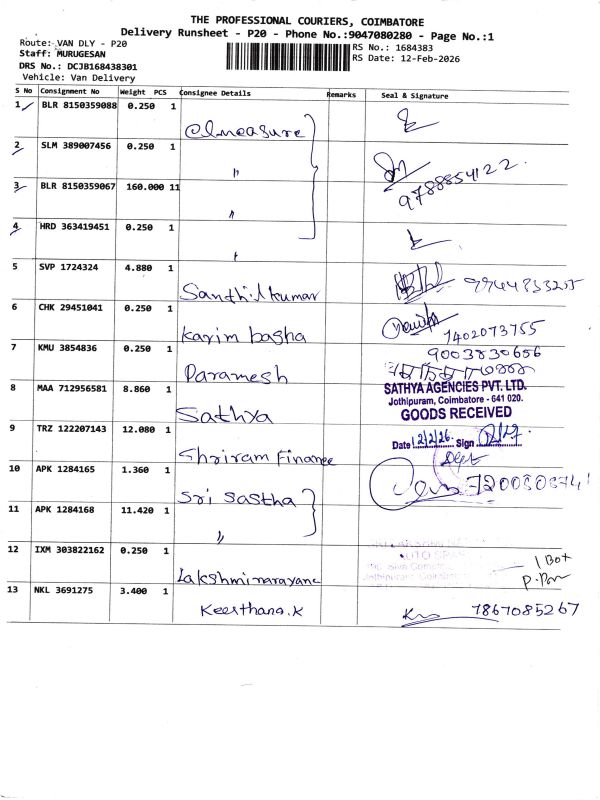 THE PROFESSIONAL COURIERS, COIMBATORE
Delivery Runsheet - P20 - Phone No.:9047080280 - Page No.:1
Route: VAN DLY - P20
RS No.: 1684383
Staff: MURUGESAN
RS Date: 12-Feb-2026
DRS No.: DCJB168438301
Vehicle: Van Delivery
S No Consignment No Weight PCS Consignee Details Remarks Seal & Signature
1 BLR 8150359088 0.250 1
2 SLM 389007456 0.250 1
" 9788854122
3 BLR 8150359067 160.000 11
"
4 HRD 363419451 0.250 1
"
5 SVP 1724324 4.880 1
Santhilkumar
6 CHK 29451041 0.250 1
Karim basha 7402073755
7 KMU 3854836 0.250 1 9003830656
Paramesh
8 MAA 712956581 8.860 1
SATHYA AGENCIES PVT. LTD.
Jothipuram, Coimbatore - 641 020.
GOODS RECEIVED
Sathya
9 TRZ 122207143 12.080 1
Date 12/2/26 Sign
Shriram Finance
10 APK 1284165 1.360 1
Sri Sastha
11 APK 1284168 11.420 1
"
12 IXM 303822162 0.250 1
1 Box
Lakshminarayana
13 NKL 3691275 3.400 1
Keerthana.K 7867085267